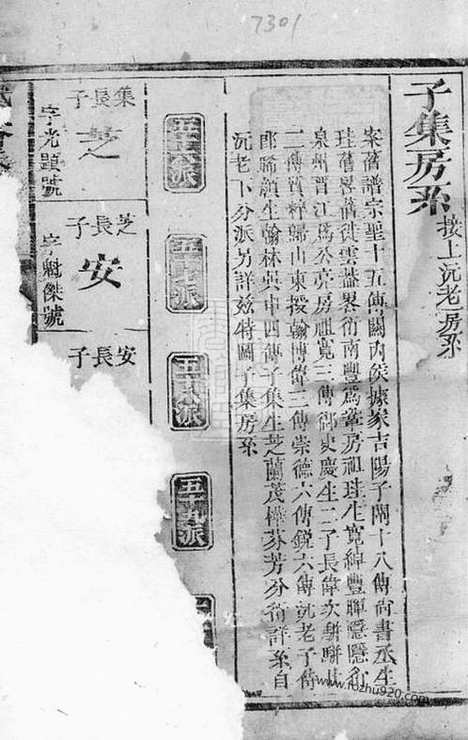 7301
子集房系 接上沅老房系
案舊譜宗聖十五傳關內侯據家吉陽子闡十八傳尚書丞生
珪舊畧舊徙雲蓋畧衍南豐為葦房祖珪生寬綽豐暉隱隱
泉州晋江為公亮房祖寬三傳御史慶生二子長偉次駢駢
二傳質粹歸山東授翰博偉三傳崇德六傳鋭六傳沅老子傳
郎晞顔生翰林英申四傳子集生芝蘭茂樺芬芳分衍詳系自
沅老下分派另詳玆特圖子集房系
五十六派
五十七派
五十八派
五十九派
集長子
芝
字光題號
芝長子
安
字魁傑號
安長子
www.fozhu920.com